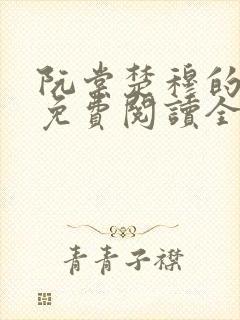 阮棠楚穆的
免費閱讀全
青青子襟